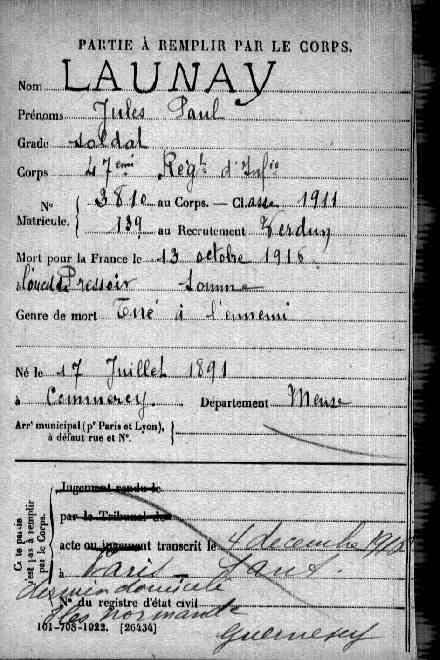 PARTIE À REMPLIR PAR LE CORPS.
Nom LAUNAY
Prénoms Jules Paul
Grade soldat
Corps 47eme Régt d'Infie
No Matricule. 3810 au Corps. — Classe 1911
139 au Recrutement Verdun
Mort pour la France le 13 octobre 1916
à Pressoir Somme
Genre de mort Tué à l'ennemi
Né le 17 Juillet 1891
à Commercy. Département Meuse
Arrt municipal (pr Paris et Lyon),
à défaut rue et No.
Cette partie
n'est pas à remplir
par le Corps.
Jugement rendu le
par le Tribunal de
acte ou jugement transcrit le 4 decembre
à Paris
dernier domicile
No du registre d'état civil
Iles normande
Guernesey
101-708-1922. [26434]